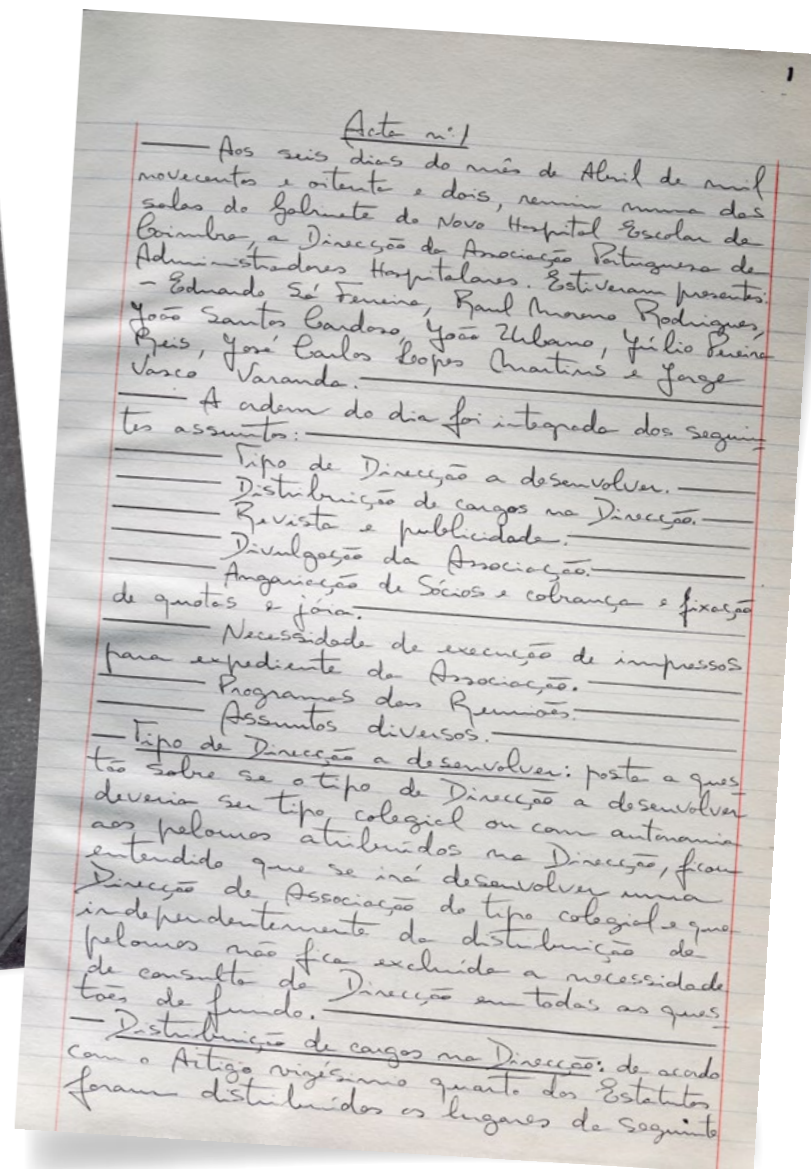 1
Acta nº1
—— Aos seis dias do mês de Abril de mil
novecentos e oitenta e dois, reuniu numa das
salas do Gabinete do Novo Hospital Escolar de
Coimbra, a Direcção da Associação Portuguesa de
Administradores Hospitalares. Estiveram presentes:
- Eduardo Sá Ferreira, Raul Moreno Rodrigues,
João Santos Cardoso, João Urbano, Júlio Pereira
Reis, José Carlos Lopes Martins e Jorge
Vasco Varanda. ——
—— A ordem do dia foi integrada dos seguin-
tes assuntos: ——
—— Tipo de Direcção a desenvolver. ——
—— Distribuição de cargos na Direcção. ——
—— Revista e publicidade. ——
—— Divulgação da Associação. ——
—— Angariação de Sócios e cobrança e fixação
de quotas e jóia. ——
—— Necessidade de execução de impressos
para expediente da Associação. ——
—— Programas das Reuniões. ——
—— Assuntos diversos. ——
— Tipo de Direcção a desenvolver: posta a ques-
tão sobre se o tipo de Direcção a desenvolver
deveria ser tipo colegial ou com autonomia
aos pelouros atribuídos na Direcção, ficou
entendido que se irá desenvolver uma
Direcção de Associação do tipo colegial e que
independentemente da distribuição de
pelouros não fica excluída a necessidade
de consulta da Direcção em todas as ques-
tões de fundo. ——
— Distribuição de cargos na Direcção: de acordo
com o Artigo vigésimo quarto dos Estatutos
foram distribuídos os lugares da seguinte